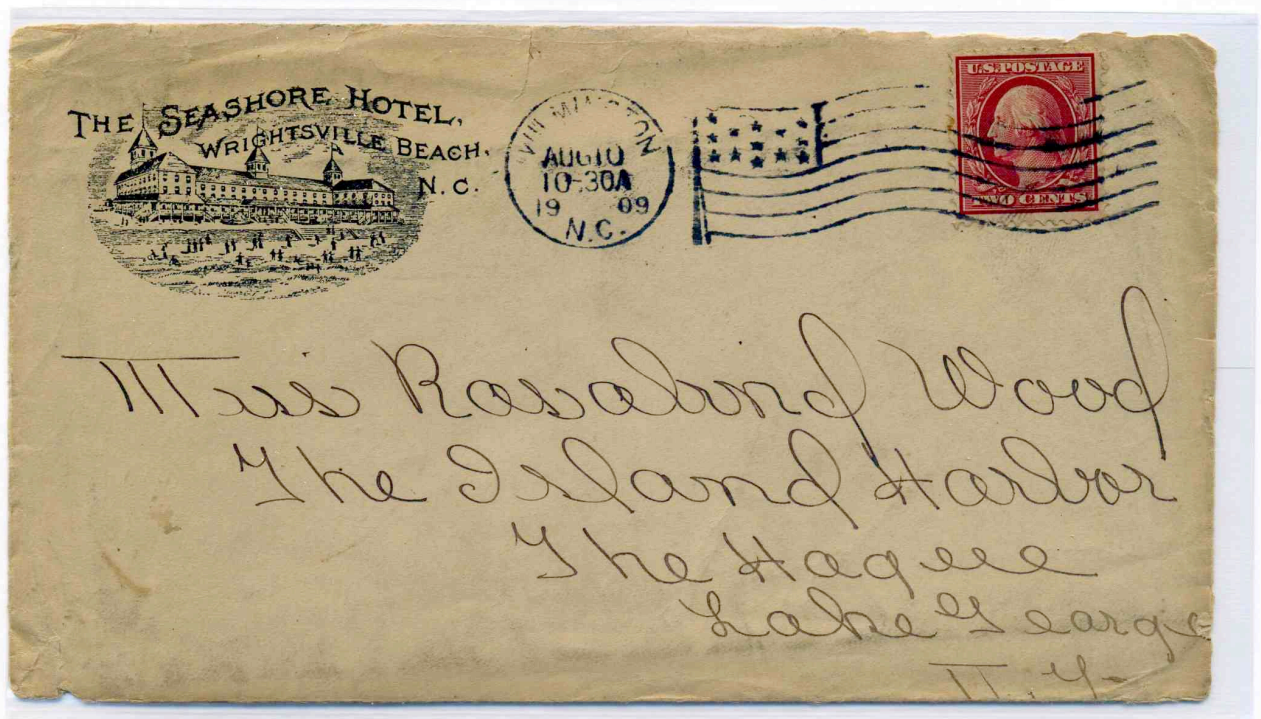 THE SEASHORE HOTEL,
WRIGHTSVILLE BEACH,
N.C.
WILMINGTON
AUG 10
10-30A
19 09
N.C.
U.S. POSTAGE
TWO CENTS
Miss Rosalind Wood
The Island Harbor
The Hague
Lake George
N.Y.